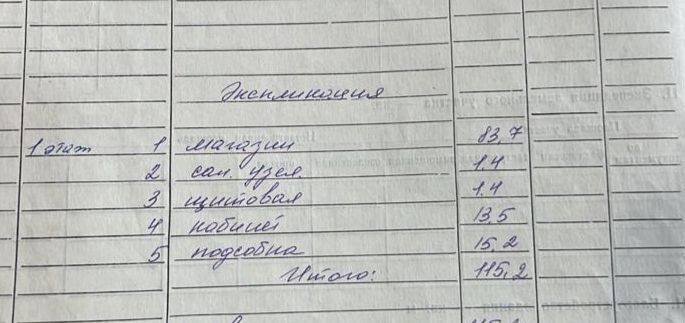 Экспликация
1 этаж 1 магазин 83,7
2 сан. узел 1.4
3 щитовая 1.4
4 кабинет 13.5
5 подсобка 15.2
Итого: 115,2